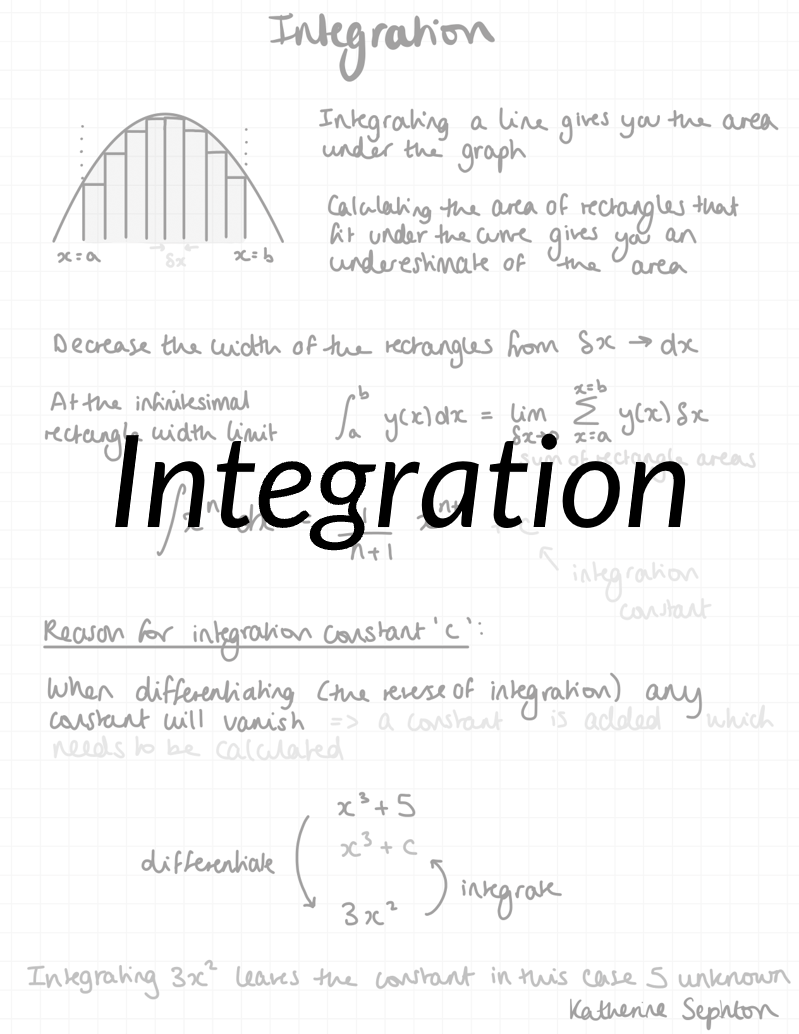 Integration
Integrating a line gives you the area
under the graph
Calculating the area of rectangles that
fit under the curve gives you an
underestimate of the area
x=a δx x=b
Decrease the width of the rectangles from δx → dx
At the infinitesimal
rectangle width limit
∫ₐᵇ y(x)dx = lim δx→0 Σ x=a x=b y(x) δx
sum of rectangle areas
Integration
∫xⁿ dx = 1/(n+1) xⁿ⁺¹ + c
integration
constant
Reason for integration constant 'c':
When differentiating (the reverse of integration) any
constant will vanish => a constant is added which
needs to be calculated
x³ + 5
x³ + c
differentiate
integrate
3x²
Integrating 3x² leaves the constant in this case 5 unknown
Katherine Sephton